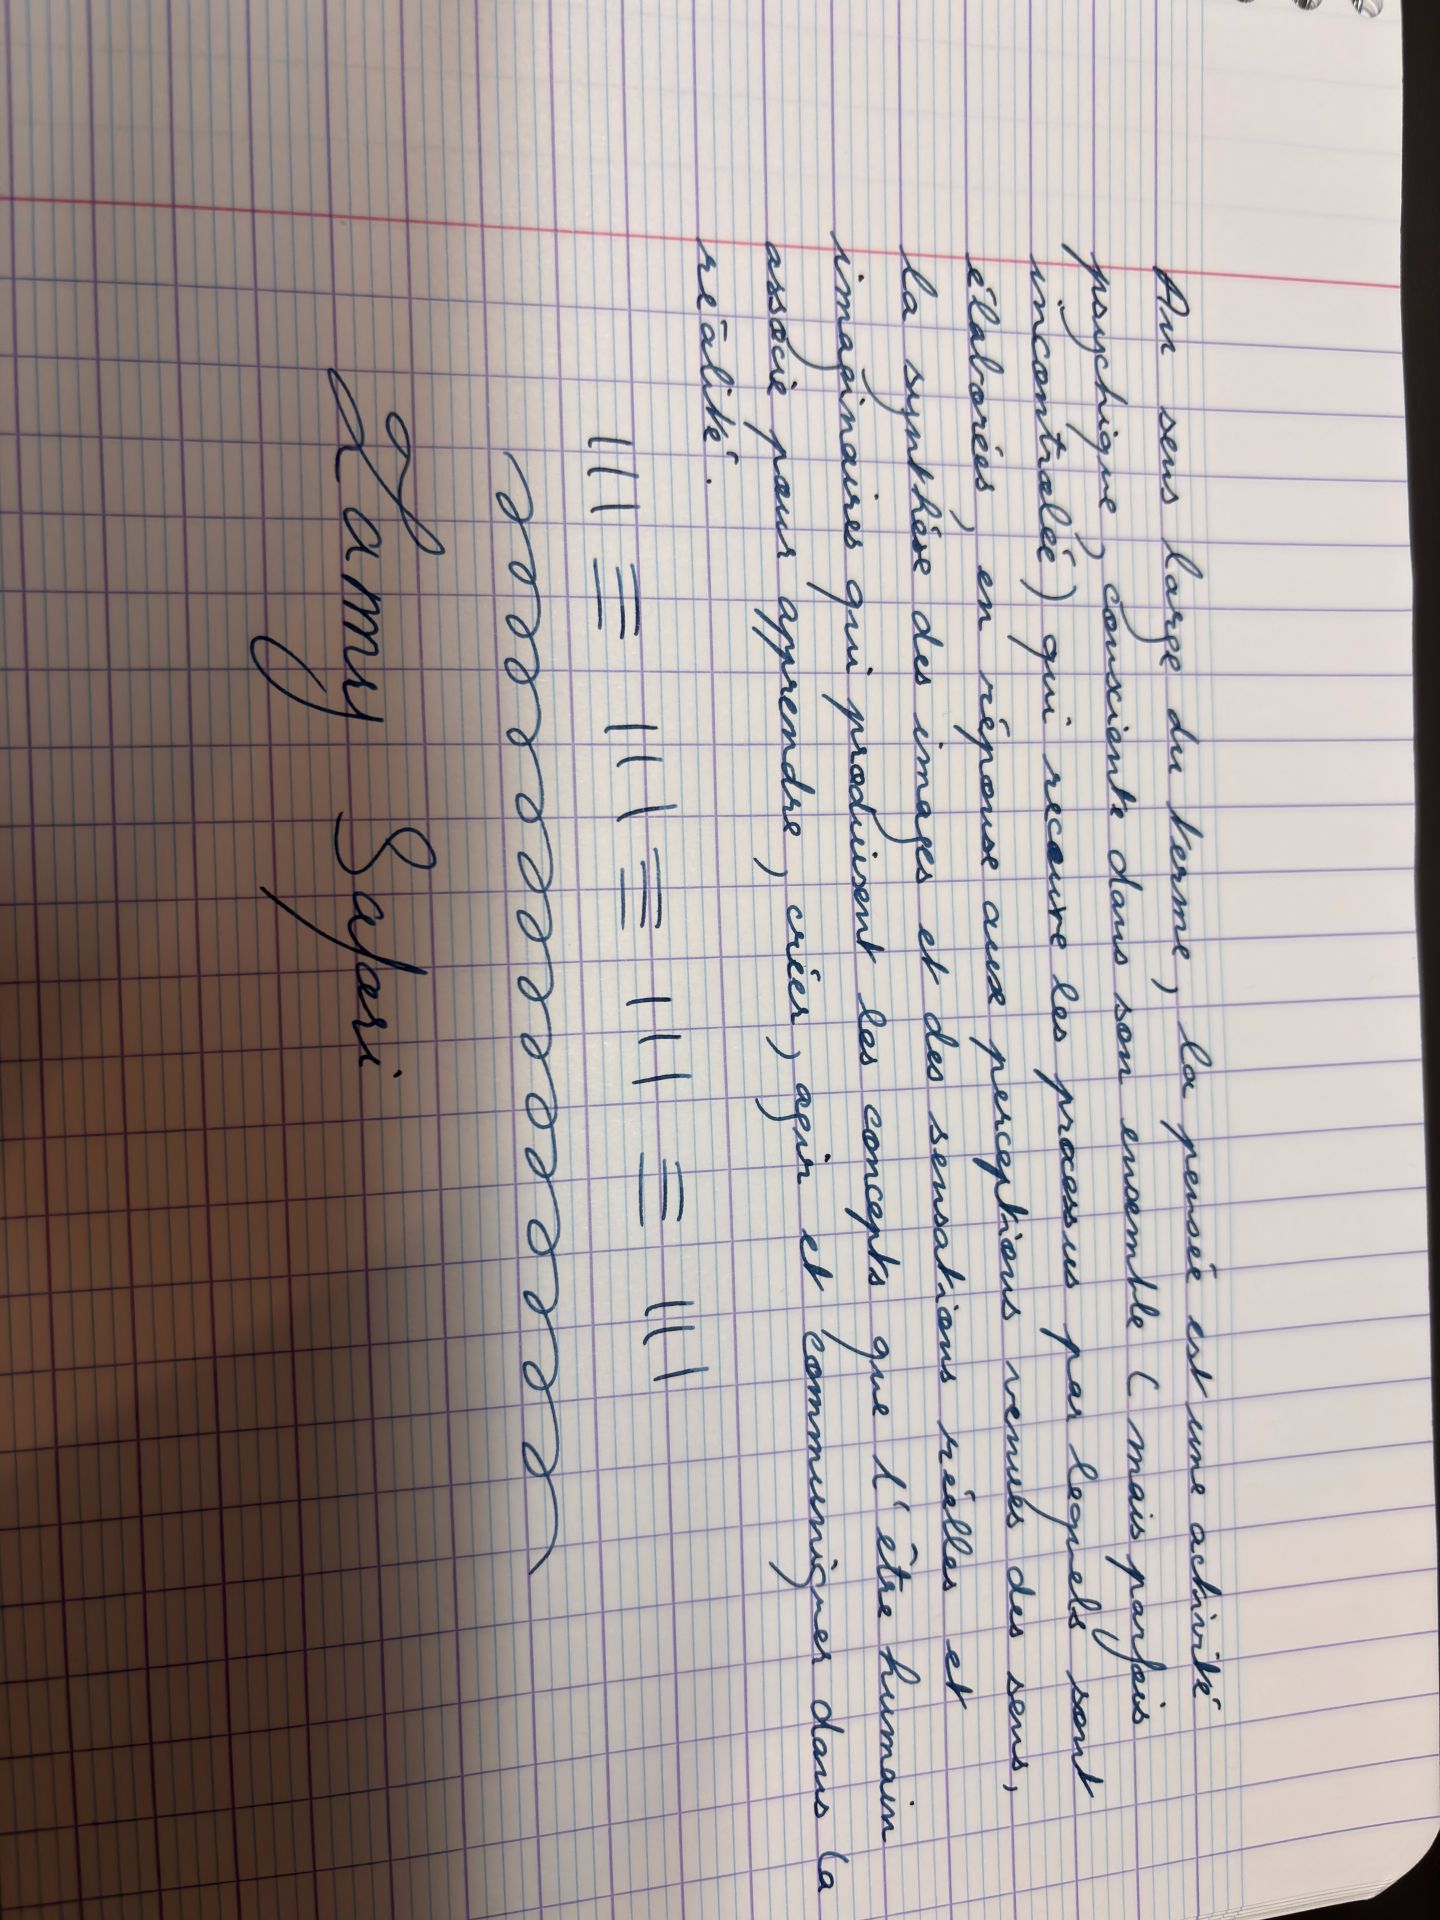 Au sens large du terme, la pensée est une activité
psychique, consciente dans son ensemble (mais parfois
incontrolée) qui recouvre les processus par lequels sont
élaborées, en réponse aux perceptions venues des sens,
la synthèse des images et des sensations réelles et
imaginaires qui produisent les concepts que l'être humain
associe pour apprendre, créer, agir et communiquer dans la
réalité.
Lamy Safari